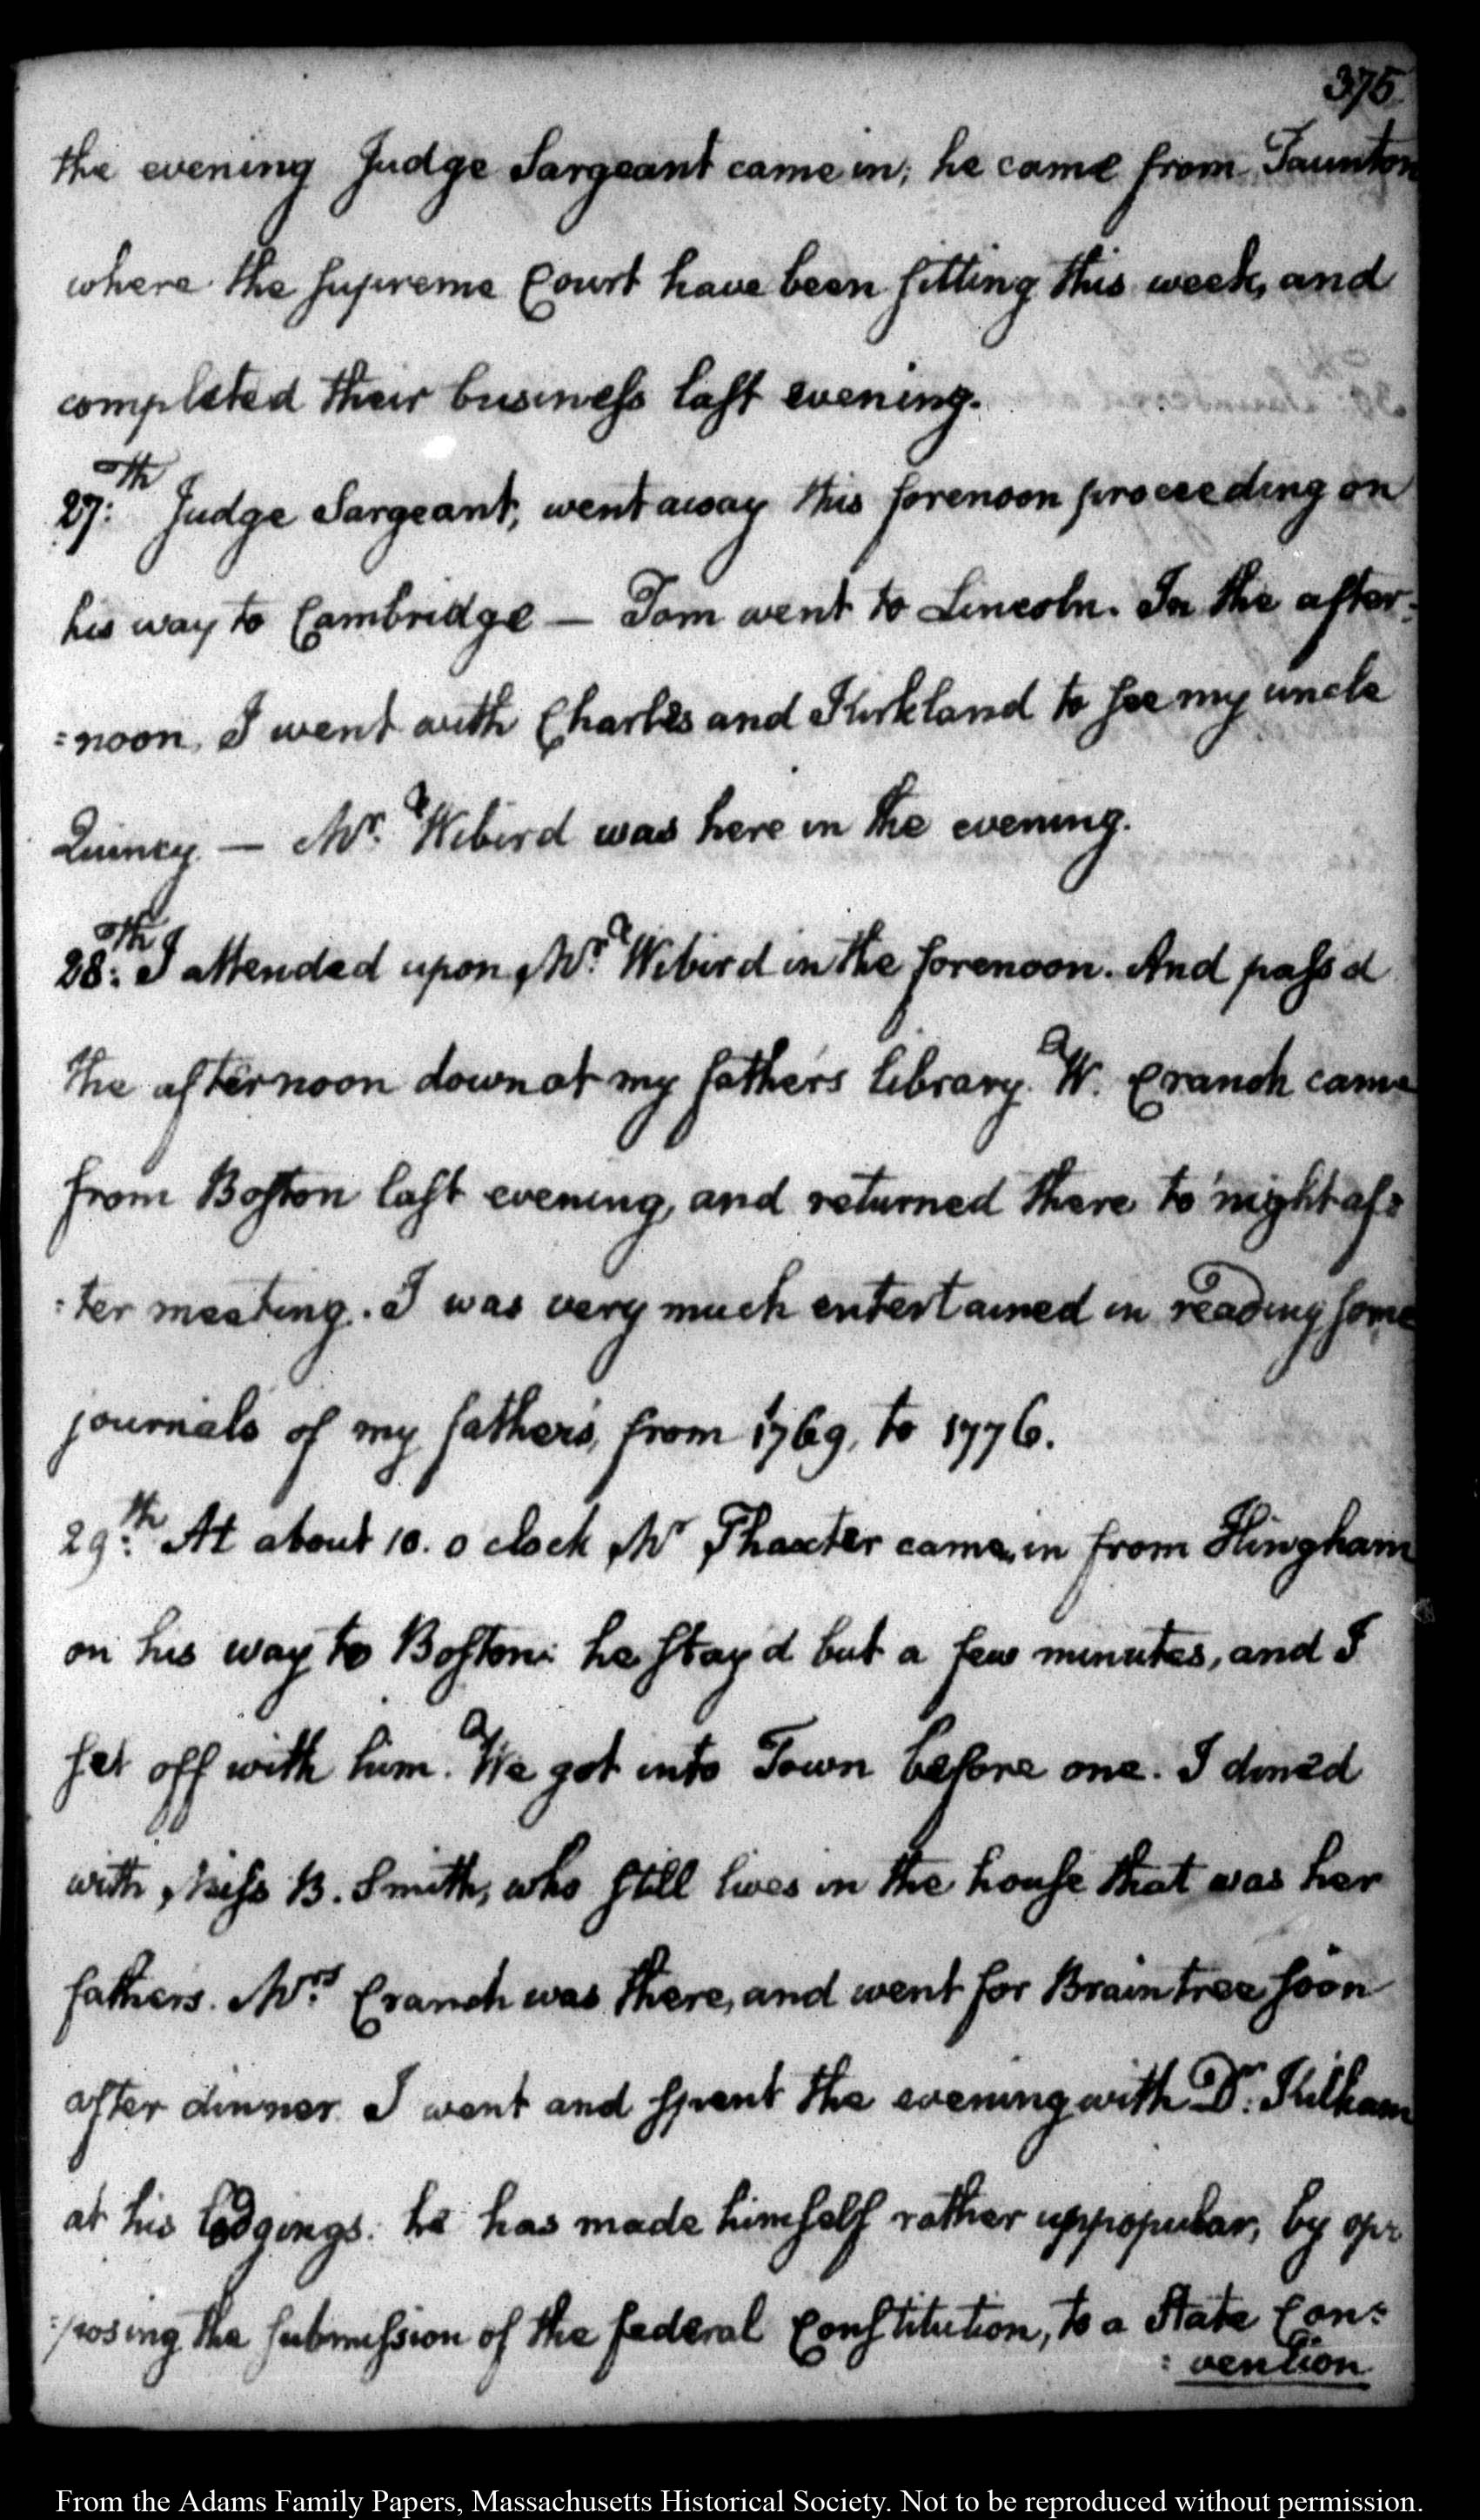 375
the evening Judge Sargeant came in; he came from Taunton
where the supreme Court have been sitting this week, and
completed their business last evening.
27:th Judge Sargeant, went away this forenoon proceeding on
his way to Cambridge — Tom went to Lincoln. In the after:
:noon, I went with Charles and Kirkland to see my uncle
Quincy. — Mr. Wibird was here in the evening.
28:th I attended upon Mr. Wibird in the forenoon. And pass'd
the afternoon down at my father's library. W. Cranch came
from Boston last evening, and returned there to night af:
:ter meeting. I was very much entertained in reading some
journals of my father's, from 1769, to 1776.
29:th At about 10. o clock Mr Thaxter came in from Hingham
on his way to Boston: he stay'd but a few minutes, and I
set off with him. We got into Town before one. I dined
with Miss B. Smith, who still lives in the house that was her
fathers. Mrs. Cranch was there, and went for Braintree soon
after dinner. I went and spent the evening with Dr. Kilham
at his lodgings. he has made himself rather uppopular, by op:
:posing the submission of the federal Constitution, to a State Con:
: vention
From the Adams Family Papers, Massachusetts Historical Society. Not to be reproduced without permission.